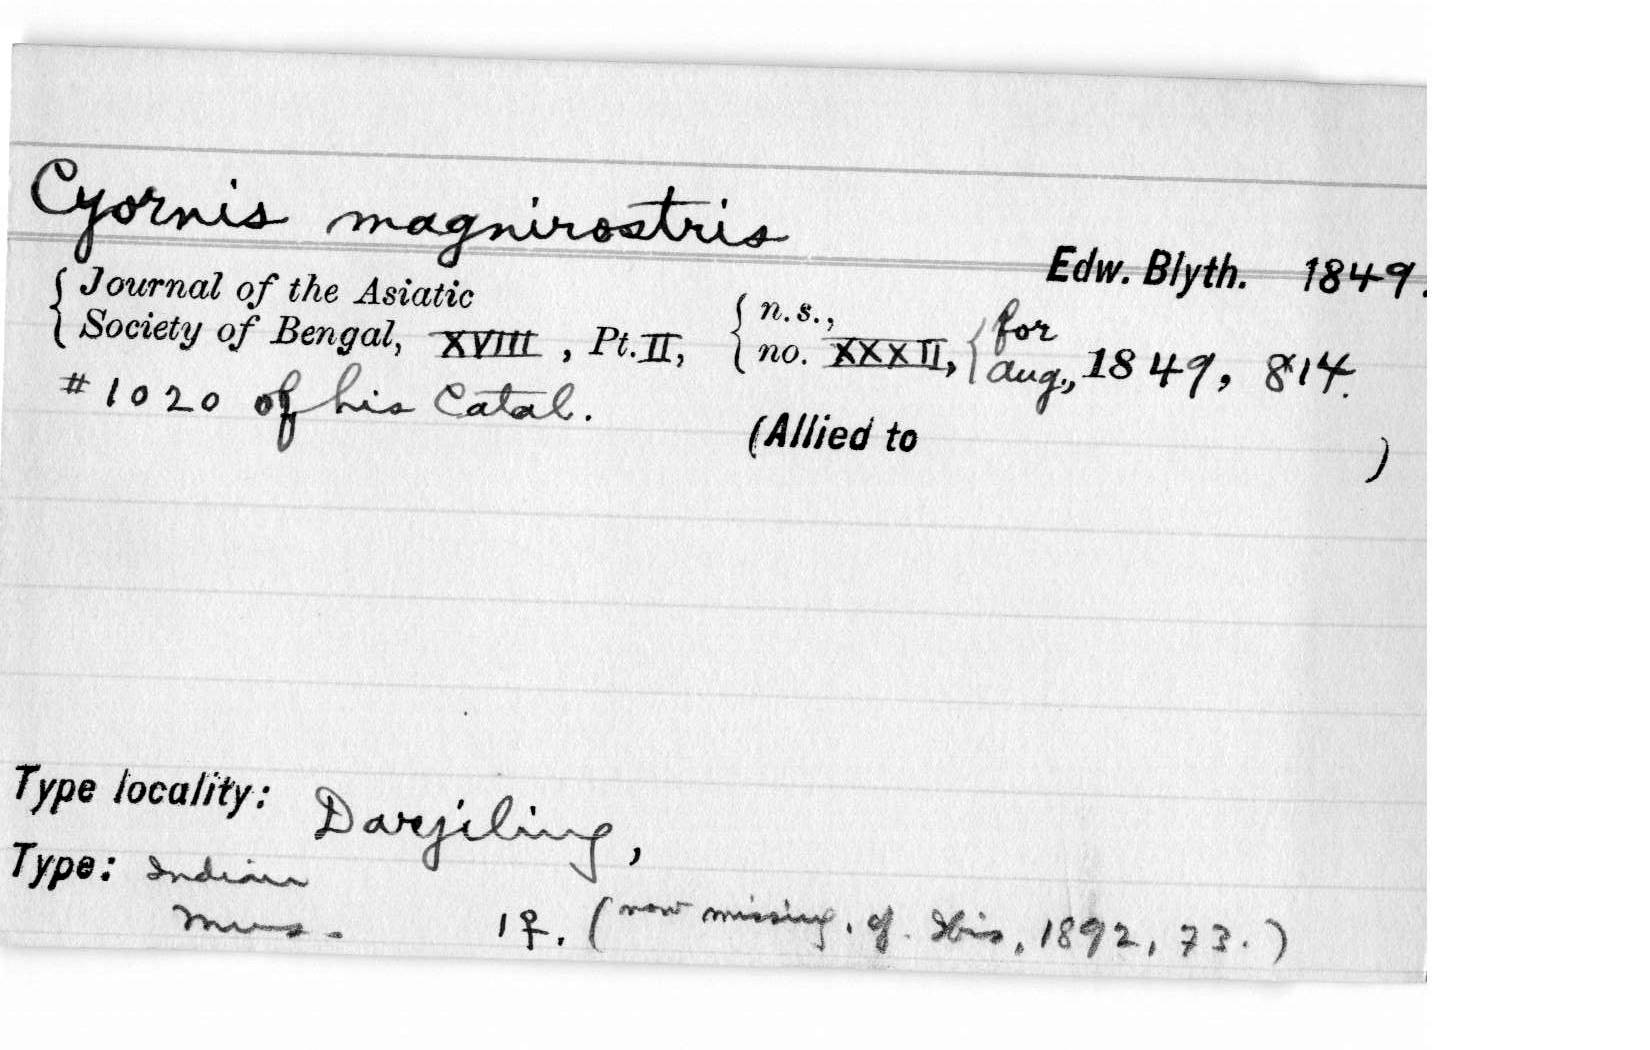 Cyornis magnirostris
Edw. Blyth. 1849.
{ Journal of the Asiatic
Society of Bengal, XVIII, Pt. II, { n.s., no. XXXII, { for Aug., 1849, 814.
# 1020 of his Catal.
(Allied to )
Type locality: Darjiling,
Type: Indian
Mus. 1♀. (now missing, cf. Ibis, 1892, 73.)